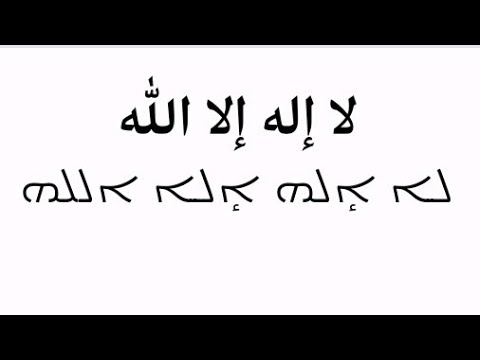 لا إله إلا الله
ܠܐ ܐٕܠܗ ܐٕܠܐ ܐܠܠܗ